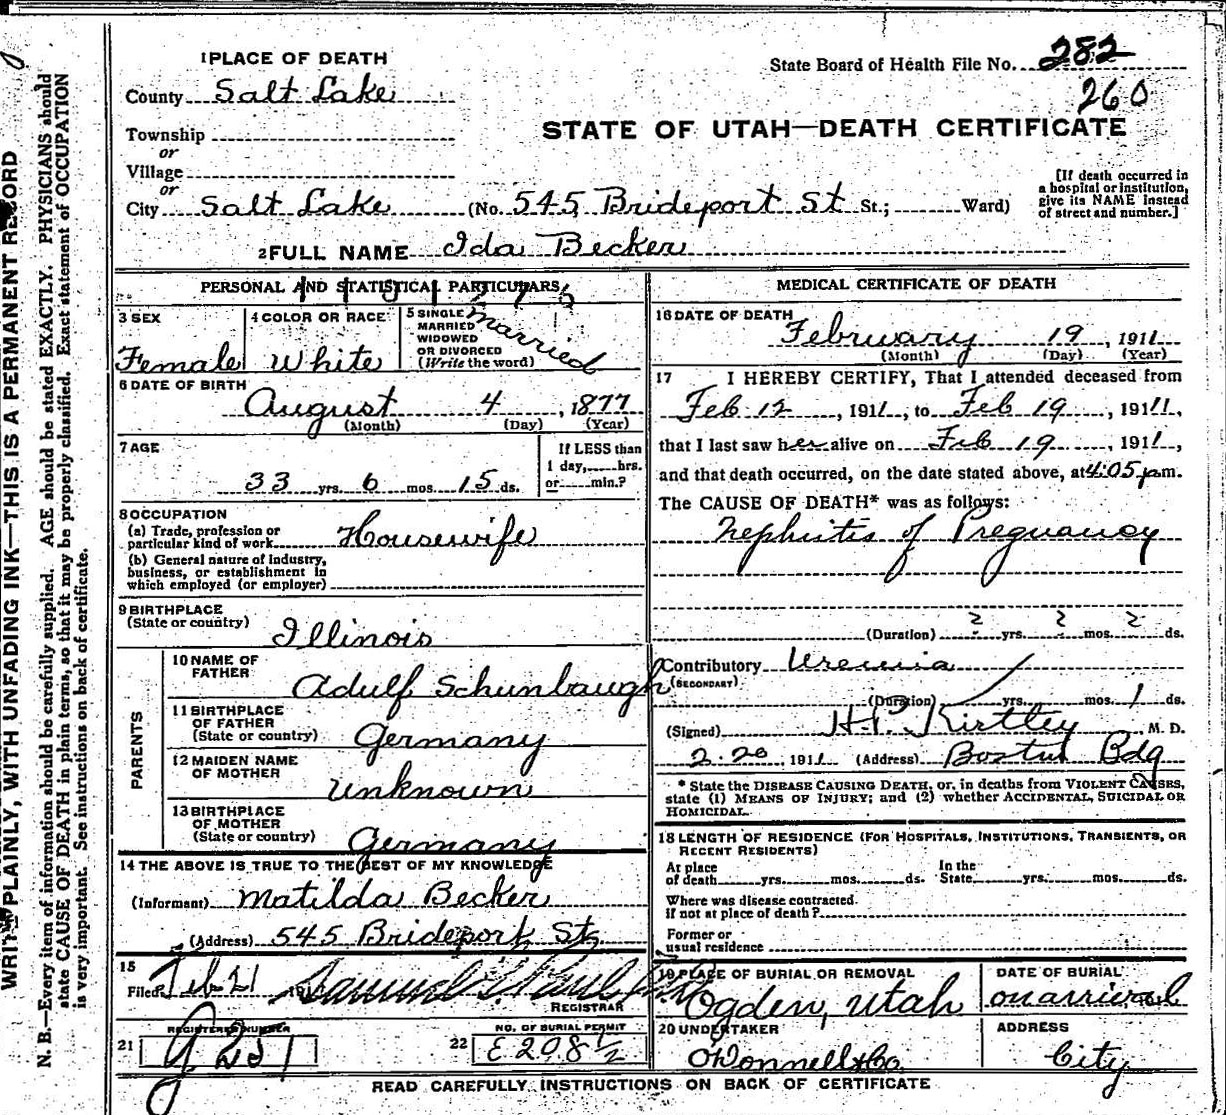 WRITE PLAINLY, WITH UNFADING INK—THIS IS A PERMANENT RECORD
N. B.—Every item of information should be carefully supplied. AGE should be stated EXACTLY. PHYSICIANS should
state CAUSE OF DEATH in plain terms, so that it may be properly classified. Exact statement of OCCUPATION
is very important. See instructions on back of certificate.
1 PLACE OF DEATH
State Board of Health File No. 282
260
County Salt Lake
STATE OF UTAH—DEATH CERTIFICATE
Township
or
Village
or
City Salt Lake (No. 545 Brideport St St.; Ward)
[If death occurred in
a hospital or institution,
give its NAME instead
of street and number.]
2 FULL NAME Ida Becker
PERSONAL AND STATISTICAL PARTICULARS
3 SEX
Female
4 COLOR OR RACE
White
5 SINGLE
MARRIED
WIDOWED
OR DIVORCED
(Write the word)
married
6 DATE OF BIRTH
August 4, 1877
(Month) (Day) (Year)
7 AGE
33 yrs. 6 mos. 15 ds.
If LESS than
1 day, hrs.
or min.?
8 OCCUPATION
(a) Trade, profession or
particular kind of work Housewife
(b) General nature of industry,
business, or establishment in
which employed (or employer)
9 BIRTHPLACE
(State or country)
Illinois
PARENTS
10 NAME OF
FATHER
Adulf Schunbaugh
11 BIRTHPLACE
OF FATHER
(State or country) Germany
12 MAIDEN NAME
OF MOTHER
Unknown
13 BIRTHPLACE
OF MOTHER
(State or country) Germany
14 THE ABOVE IS TRUE TO THE BEST OF MY KNOWLEDGE
(Informant) Matilda Becker
(Address) 545 Brideport St
15
Filed Feb 21 191
REGISTRAR
21 REGISTERED NUMBER
22 NO. OF BURIAL PERMIT
E 208 1/2
MEDICAL CERTIFICATE OF DEATH
16 DATE OF DEATH
February 19, 1911
(Month) (Day) (Year)
17 I HEREBY CERTIFY, That I attended deceased from
Feb 12, 1911, to Feb 19, 1911,
that I last saw her alive on Feb 19, 1911,
and that death occurred, on the date stated above, at 4:05 pm.
The CAUSE OF DEATH* was as follows:
Nephritis of Pregnancy
(Duration) 2 yrs. 2 mos. 2 ds.
Contributory Uremia
(SECONDARY)
(Duration) yrs. mos. 1 ds.
(Signed) H.P. Kirtley M. D.
2.20 1911 (Address) Boston Bdg
* State the DISEASE CAUSING DEATH, or, in deaths from VIOLENT CAUSES,
state (1) MEANS OF INJURY; and (2) whether ACCIDENTAL, SUICIDAL OR
HOMICIDAL.
18 LENGTH OF RESIDENCE (FOR HOSPITALS, INSTITUTIONS, TRANSIENTS, OR
RECENT RESIDENTS)
At place
of death yrs. mos. ds.
In the
State yrs. mos. ds.
Where was disease contracted.
if not at place of death?
Former or
usual residence
19 PLACE OF BURIAL OR REMOVAL
Ogden, Utah
DATE OF BURIAL
on arrival
20 UNDERTAKER
O'Donnell & Co.
ADDRESS
City
READ CAREFULLY INSTRUCTIONS ON BACK OF CERTIFICATE